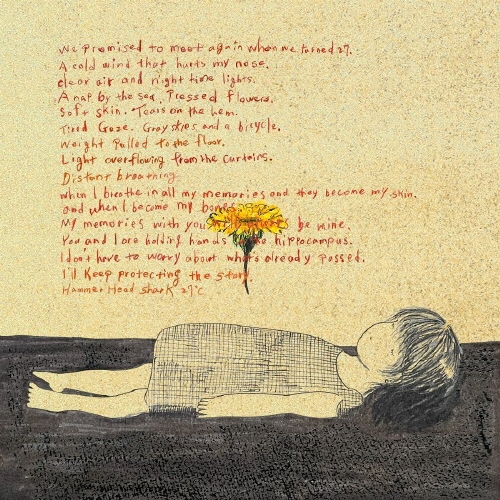 We promised to meet again when we turned 27.
A cold wind that hurts my nose.
clear air and night time lights.
A nap by the sea. Pressed flowers.
Soft skin. Tears on the hem.
Tired Gaze. Gray skies and a bicycle.
Weight pulled to the floor.
Light overflowing from the curtains.
Distant breathing.
when I breathe in all my memories and they become my skin.
and when I become my bones
My memories with you be mine.
You and I are holding hands hippocampus.
I don't have to worry about what's already passed.
I'll keep protecting the story
Hammer Head shark 27°C